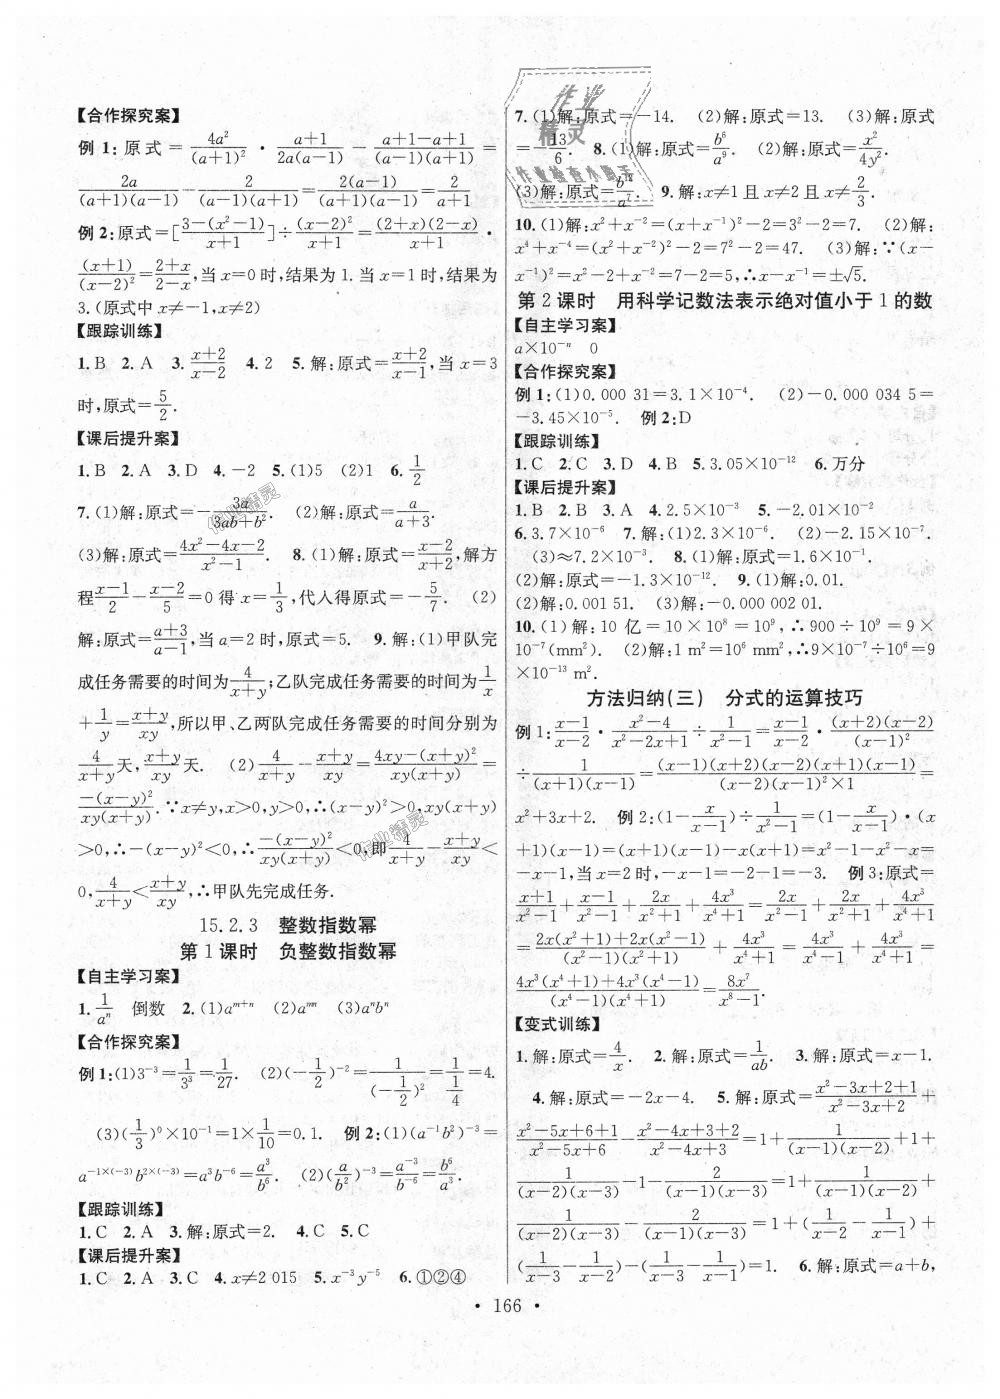 【合作探究案】
例 1:原式=$\frac{4a^2}{(a+1)^2}$·$\frac{a+1}{2a(a-1)}$-$\frac{a+1-a+1}{(a-1)(a+1)}$=
$\frac{2a}{(a+1)(a-1)}$-$\frac{2}{(a-1)(a+1)}$=$\frac{2(a-1)}{(a+1)(a-1)}$=$\frac{2}{a+1}$
例 2:原式=[$\frac{3-(x^2-1)}{x+1}$]÷$\frac{(x-2)^2}{x+1}$=$\frac{(2+x)(2-x)}{x+1}$·
$\frac{(x+1)}{(x-2)^2}$=$\frac{2+x}{2-x}$,当 x=0 时,结果为 1. 当 x=1 时,结果为
3.(原式中 x≠-1,x≠2)
【跟踪训练】
1. B 2. A 3. $\frac{x+2}{x-2}$ 4. 2 5. 解:原式=$\frac{x+2}{x-1}$,当 x=3
时,原式=$\frac{5}{2}$.
【课后提升案】
1. B 2. A 3. D 4. -2 5. (1)5 (2)1 6. $\frac{1}{2}$
7. (1)解:原式=-$\frac{3a}{3ab+b^2}$. (2)解:原式=$\frac{a}{a+3}$.
(3)解:原式=$\frac{4x^2-4x-2}{x^2-1}$. 8. (1)解:原式=$\frac{x-2}{x+2}$,解方
程$\frac{x-1}{2}$-$\frac{x-2}{5}$=0 得 x=$\frac{1}{3}$,代人得原式=-$\frac{5}{7}$. (2)
解:原式=$\frac{a+3}{a-1}$,当 a=2 时,原式=5. 9. 解:(1)甲队完
成任务需要的时间为$\frac{4}{x+y}$;乙队完成任务需要的时间为$\frac{1}{x}$
+$\frac{1}{y}$=$\frac{x+y}{xy}$,所以甲、乙两队完成任务需要的时间分别为
$\frac{4}{x+y}$天,$\frac{x+y}{xy}$天. (2)$\frac{4}{x+y}$-$\frac{x+y}{xy}$=$\frac{4xy-(x+y)^2}{xy(x+y)}$=
$\frac{-(x-y)^2}{xy(x+y)}$. ∵x≠y,x>0,y>0,∴(x-y)^2>0,xy(x+y)
>0,∴-(x-y)^2<0,∴$\frac{-(x-y)^2}{xy(x+y)}$<0,即$\frac{4}{x+y}$-$\frac{x+y}{xy}$<
0,$\frac{4}{x+y}$<$\frac{x+y}{xy}$,∴甲队先完成任务.
15.2.3 整数指数幂
第 1 课时 负整数指数幂
【自主学习案】
1. $\frac{1}{a^n}$ 倒数 2. (1)$a^{m+n}$ (2)$a^{mn}$ (3)$a^nb^n$
【合作探究案】
例 1:(1)$3^{-3}$=$\frac{1}{3^3}$=$\frac{1}{27}$. (2)$(-\frac{1}{2})^{-2}$=$\frac{1}{(-\frac{1}{2})^2}$=$\frac{1}{\frac{1}{4}}$=4.
(3)$(\frac{1}{3})^0$×$10^{-1}$=1×$\frac{1}{10}$=0.1. 例 2:(1)$(a^{-1}b^2)^{-3}$=
$a^{-1×(-3)}b^{2×(-3)}$=$a^3b^{-6}$=$\frac{a^3}{b^6}$. (2)$(\frac{a}{b^2})^{-3}$=$\frac{a^{-3}}{b^{-6}}$=$\frac{b^6}{a^3}$.
【跟踪训练】
1. C 2. A 3. 解:原式=2. 4. C 5. C
【课后提升案】
1. C 2. A 3. C 4. x≠2 015 5. $x^{-3}y^{-5}$ 6. ①②④
7. (1)解:原式=-14. (2)解:原式=13. (3)解:原式
=-$\frac{13}{6}$. 8. (1)解:原式=$\frac{b^6}{a^9}$. (2)解:原式=$\frac{x^2}{4y^2}$.
(3)解:原式= 9. 解:x≠1 且 x≠2 且 x≠$\frac{2}{3}$.
10. (1)解:$x^2+x^{-2}$=$(x+x^{-1})^2$-2=$3^2$-2=7. (2)解:
$x^4+x^{-4}$=$(x^2+x^{-2})^2$-2=$7^2$-2=47. (3)解:∵(x-
$x^{-1})^2$=$x^2$-2+$x^{-2}$=7-2=5,∴x-$x^{-1}$=±$\sqrt{5}$.
第 2 课时 用科学记数法表示绝对值小于 1 的数
【自主学习案】
a×$10^{-n}$ 0
【合作探究案】
例 1:(1)0.000 31=3.1×$10^{-4}$. (2)-0.000 034 5=
-3.45×$10^{-5}$. 例 2:D
【跟踪训练】
1. C 2. C 3. D 4. B 5. 3.05×$10^{-12}$ 6. 万分
【课后提升案】
1. B 2. B 3. A 4. 2.5×$10^{-3}$ 5. -2.01×$10^{-2}$
6. 3.7×$10^{-6}$ 7. 解:(1)2.3×$10^{-6}$. (2)-2.05×$10^{-7}$.
(3)≈7.2×$10^{-3}$. 8. (1)解:原式=1.6×$10^{-1}$.
(2)解:原式=-1.3×$10^{-12}$. 9. (1)解:0.01.
(2)解:0.001 51. (3)解:-0.000 002 01.
10. (1)解:10 亿=10×$10^8$=$10^9$,∴900÷$10^9$=9×
$10^{-7}$(mm$^2$). (2)解:1 m$^2$=$10^6$ mm$^2$,∴9×$10^{-7}$÷$10^6$=9
×$10^{-13}$ m$^2$.
方法归纳(三) 分式的运算技巧
例 1:$\frac{x-1}{x-2}$·$\frac{x^2-4}{x^2-2x+1}$÷$\frac{1}{x^2-1}$=$\frac{x-1}{x-2}$·$\frac{(x+2)(x-2)}{(x-1)^2}$
÷$\frac{1}{(x+1)(x-1)}$=$\frac{(x-1)(x+2)(x-2)(x+1)(x-1)}{(x-2)(x-1)^2×1}$=
$x^2$+3x+2. 例 2:(1-$\frac{x}{x-1}$)÷$\frac{1}{x^2-1}$=(1-$\frac{x}{x-1}$)·(x
+1)(x-1)=(x+1)(x-1)-x(x+1)=$x^2$-1-$x^2$-x=
-x-1,当 x=2 时,-x-1=-2-1=-3. 例 3:原式=
$\frac{x+1}{x^2-1}$+$\frac{x-1}{x^2-1}$+$\frac{2x}{x^2+1}$+$\frac{4x^3}{x^4+1}$=$\frac{2x}{x^2-1}$+$\frac{2x}{x^2+1}$+$\frac{4x^3}{x^4+1}$
=$\frac{2x(x^2+1)+2x(x^2-1)}{(x^2-1)(x^2+1)}$+$\frac{4x^3}{x^4+1}$=$\frac{4x^3}{x^4-1}$+$\frac{4x^3}{x^4+1}$=
$\frac{4x^3(x^4+1)+4x^3(x^4-1)}{(x^4-1)(x^4+1)}$=$\frac{8x^7}{x^8-1}$.
【变式训练】
1. 解:原式=$\frac{4}{x}$. 2. 解:原式=$\frac{1}{ab}$. 3. 解:原式=x-1.
4. 解:原式=-2x-4. 5. 解:原式=$\frac{x^2-3x+2+1}{x^2-3x+2}$+
$\frac{x^2-5x+6+1}{x^2-5x+6}$-$\frac{x^2-4x+3+2}{x^2-4x+3}$=1+$\frac{1}{(x-1)(x-2)}$+1+
$\frac{1}{(x-2)(x-3)}$-1-$\frac{2}{(x-1)(x-3)}$=1+$\frac{1}{(x-1)(x-2)}$+
$\frac{1}{(x-2)(x-3)}$-$\frac{2}{(x-1)(x-3)}$=1+($\frac{1}{x-2}$-$\frac{1}{x-1}$)+
($\frac{1}{x-3}$-$\frac{1}{x-2}$)-($\frac{1}{x-3}$-$\frac{1}{x-1}$)=1. 6. 解:原式=a+b,
· 166 ·
作业
精灵